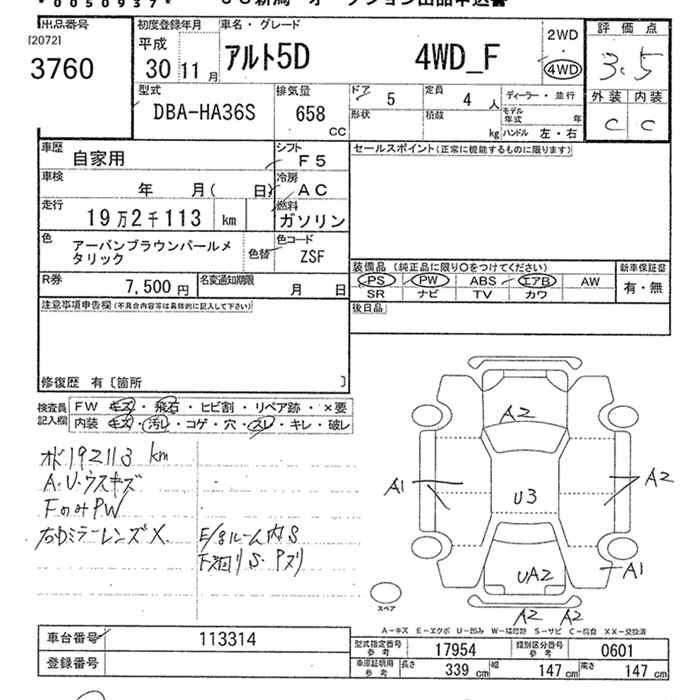 * 0050937*
出品番号
[2072]
3760
初度登録年月
平成
30 11 月
車名・グレード
アルト5D 4WD_F
2WD
4WD
評価点
3.5
外装 内装
C C
型式
DBA-HA36S
排気量
658 CC
ドア 5
定員 4 人
ディーラー・並行
形状
積載 kg
モデル年式 年
ハンドル 左・右
車歴
自家用
シフト
F5
セールスポイント(正常に機能するものに限ります)
車検
年 月( 日)
冷房
AC
走行
19万2千113 km
燃料
ガソリン
色
アーバンブラウンパールメタリック
色替
色コード
ZSF
装備品(純正品に限り〇をつけてください)
新車保証書
PS PW ABS エアB AW
有・無
SR ナビ TV カワ
R券
7,500 円
名変通知期限
月 日
後日品
注意事項申告欄(不具合内容等は具体的に記入して下さい)
修復歴 有〔箇所 〕
検査員記入欄
FW キズ・飛石・ヒビ割・リペア跡・×要
内装 キズ・汚レ・コゲ・穴・スレ・キレ・破レ
オド192113 km
A・U・ウスキズ
FのみPW
右ドミラーレンズX
E/gルーム内S
下廻りS・Pズリ
A2
A1
U3
A2
UA2
A1
A2 A2
スペア
A-キズ E-エクボ U-凹み W-補修跡 S-サビ C-腐食 XX-交換済
車台番号
113314
登録番号
型式指定番号 参考
17954
類別区分番号 参考
0601
車庫証明用 参考
長さ 339 cm
幅 147 cm
高さ 147 cm